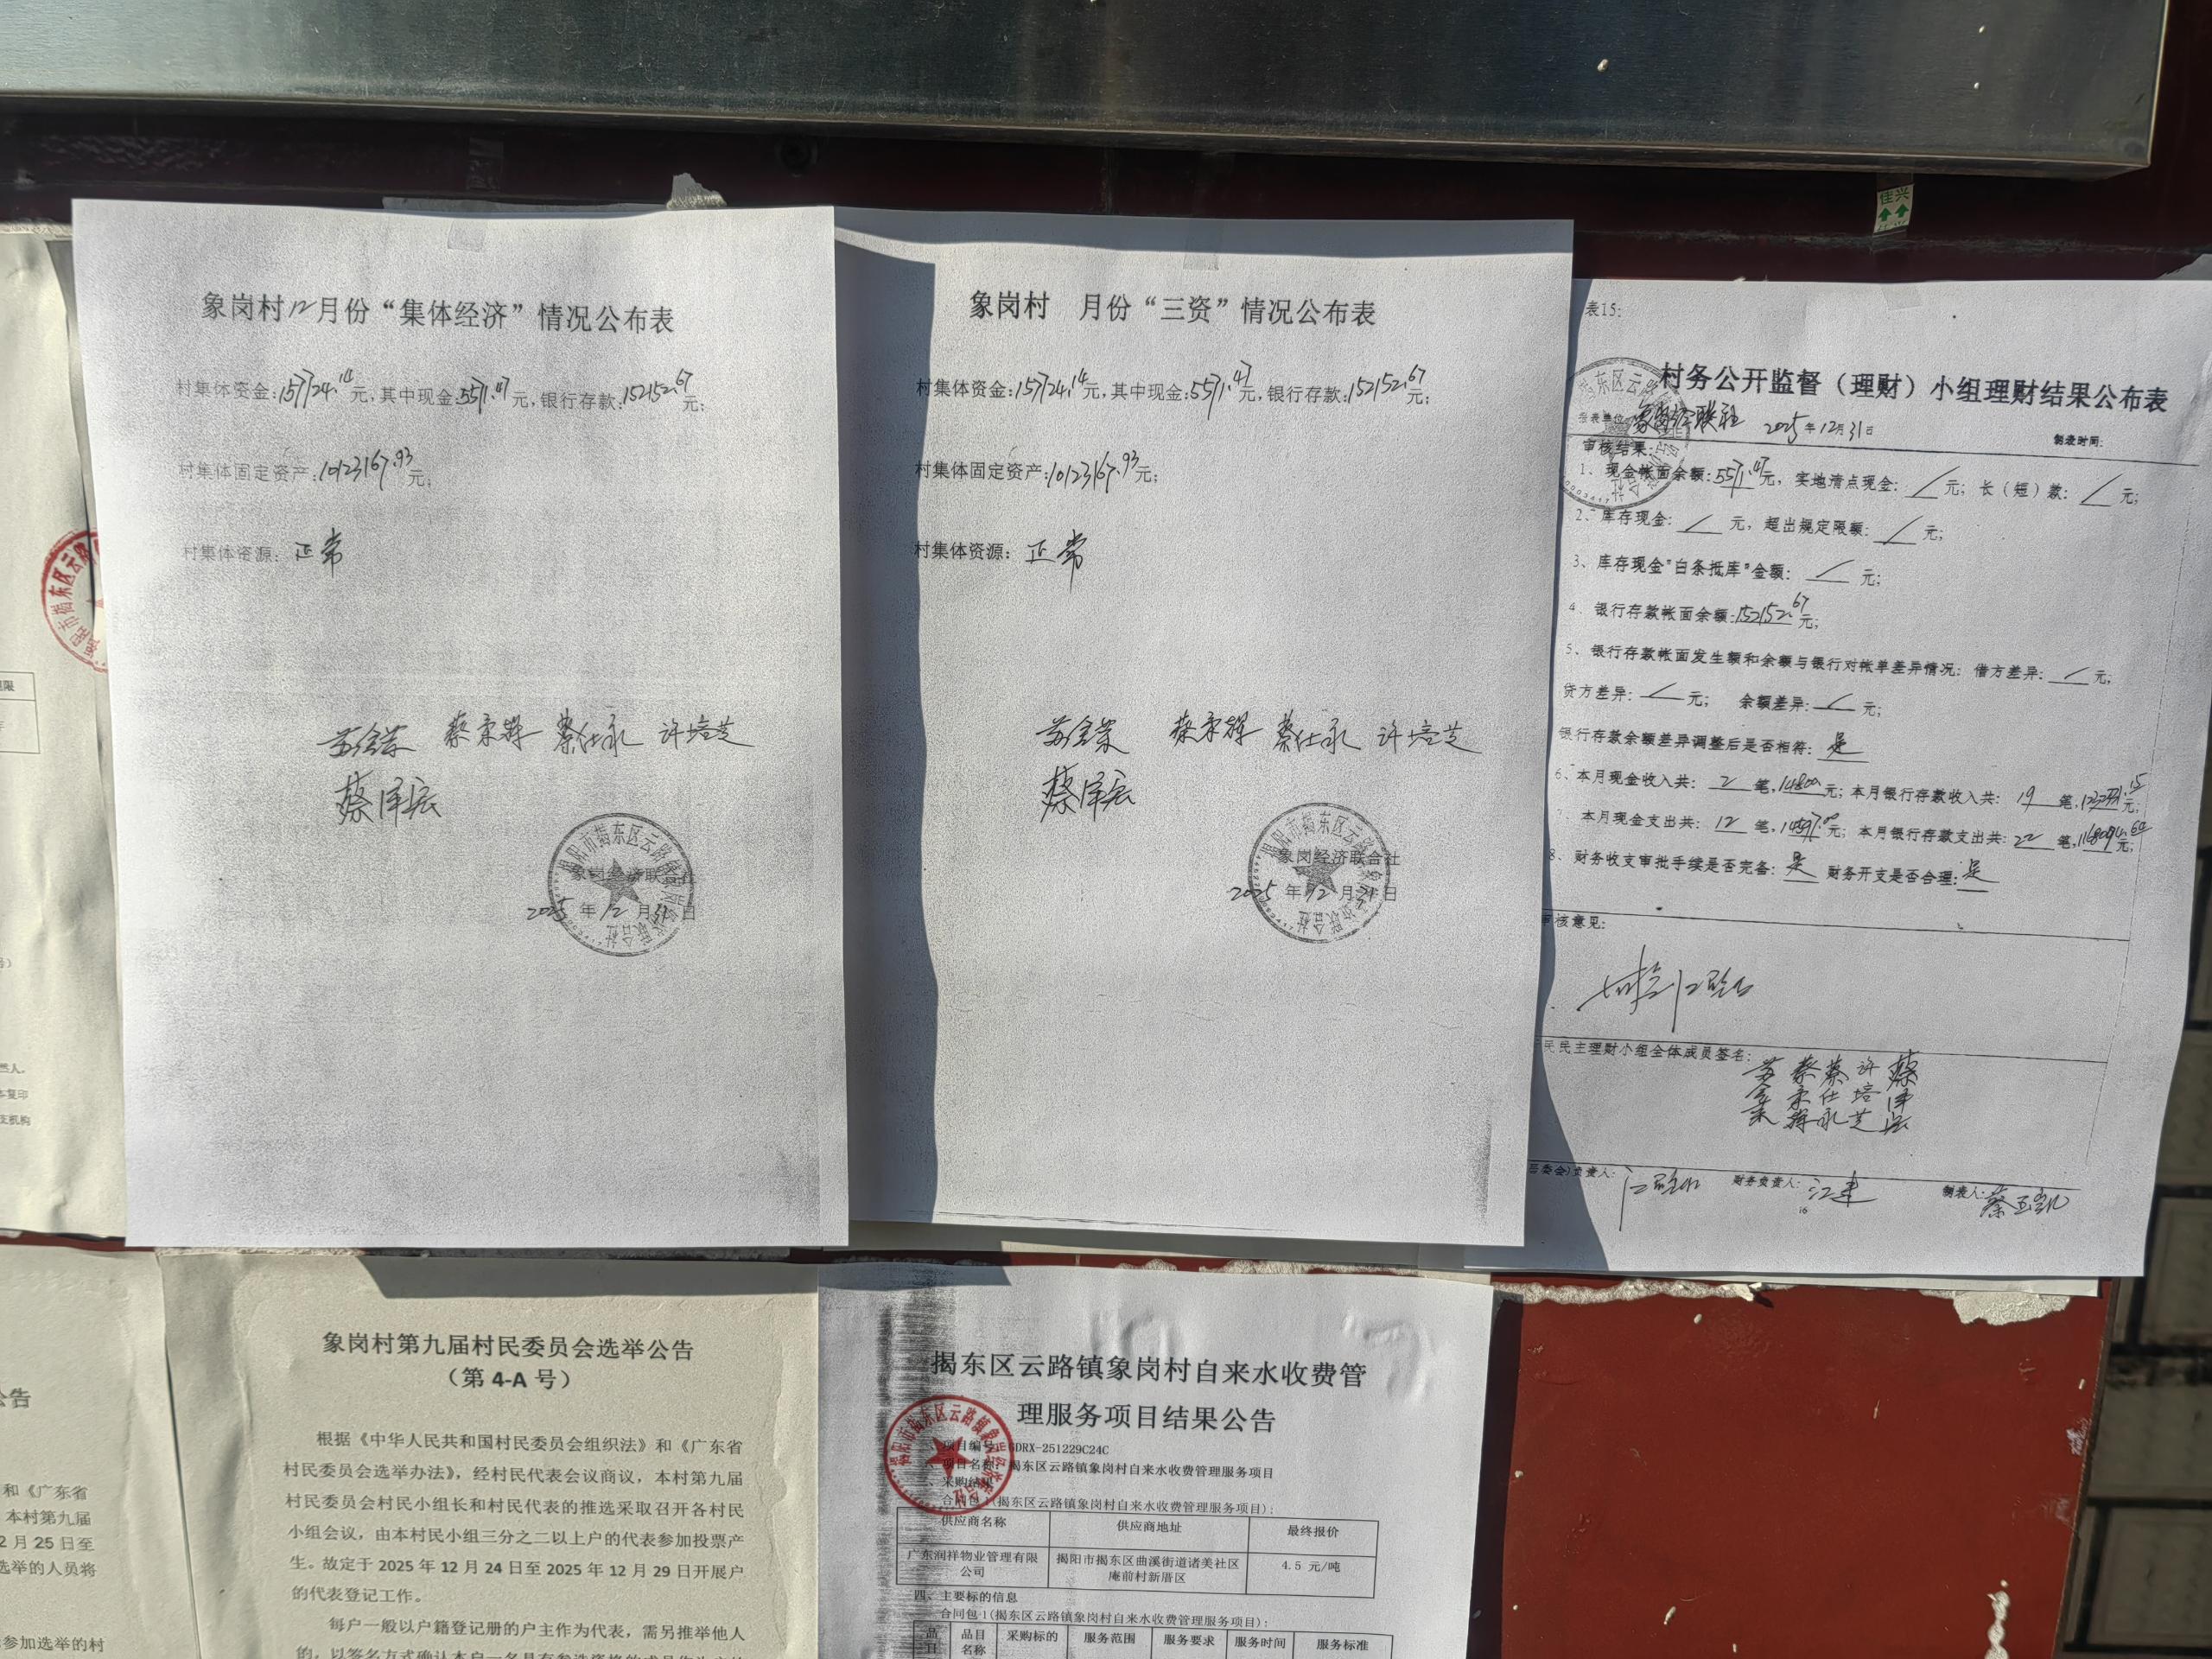 佳兴
象岗村12月份“集体经济”情况公布表
村集体资金:157724.14元,其中现金:5571.47元,银行存款:152152.67元;
村集体固定资产:10123167.93元;
村集体资源:正常
蔡仕永 许培芝
象岗经济联合社
2025年12月31日
象岗村 月份“三资”情况公布表
村集体资金:157724.14元,其中现金:5571.47元,银行存款:152152.67元;
村集体固定资产:10123167.93元;
村集体资源:正常
蔡仕永 许培芝
象岗经济联合社
2025年12月31日
表15:
村务公开监督(理财)小组理财结果公布表
象岗经联社 2025年12月31日 制表时间:
审核结果:
1、现金帐面余额:5571.47元,实地清点现金:／元;长(短)款:／元;
2、库存现金:／元,超出规定限额:／元;
3、库存现金“白条抵库”金额:／元;
4、银行存款帐面余额:152152.67元;
5、银行存款帐面发生额和余额与银行对帐单差异情况:借方差异:／元;
贷方差异:／元; 余额差异:／元;
银行存款余额差异调整后是否相符:是
6、本月现金收入共:2笔,元;本月银行存款收入共:19笔,元;
本月现金支出共:12笔,元;本月银行存款支出共:22笔,元;
8、财务收支审批手续是否完备:是 财务开支是否合理:是
审核意见:
民主理财小组全体成员签名:
蔡仕永 许培芝
负责人: 财务负责人: 制表人:
象岗村第九届村民委员会选举公告
(第 4-A 号)
根据《中华人民共和国村民委员会组织法》和《广东省
村民委员会选举办法》,经村民代表会议商议,本村第九届
村民委员会村民小组长和村民代表的推选采取召开各村民
小组会议,由本村民小组三分之二以上户的代表参加投票产
生。故定于 2025 年 12 月 24 日至 2025 年 12 月 29 日开展户
的代表登记工作。
每户一般以户籍登记册的户主作为代表,需另推举他人
揭东区云路镇象岗村自来水收费管
理服务项目结果公告
项目编号:GDRX-251229C24C
项目名称:揭东区云路镇象岗村自来水收费管理服务项目
采购结果
合同包1(揭东区云路镇象岗村自来水收费管理服务项目):
供应商名称 供应商地址 最终报价
广东润祥物业管理有限公司 揭阳市揭东区曲溪街道诸美社区庵前村新厝区 4.5 元/吨
四、主要标的信息
合同包1(揭东区云路镇象岗村自来水收费管理服务项目):
品目 品目名称 采购标的 服务范围 服务要求 服务时间 服务标准
公告
和《广东省
本村第九届
2 月 25 日至
选举的人员将
参加选举的村